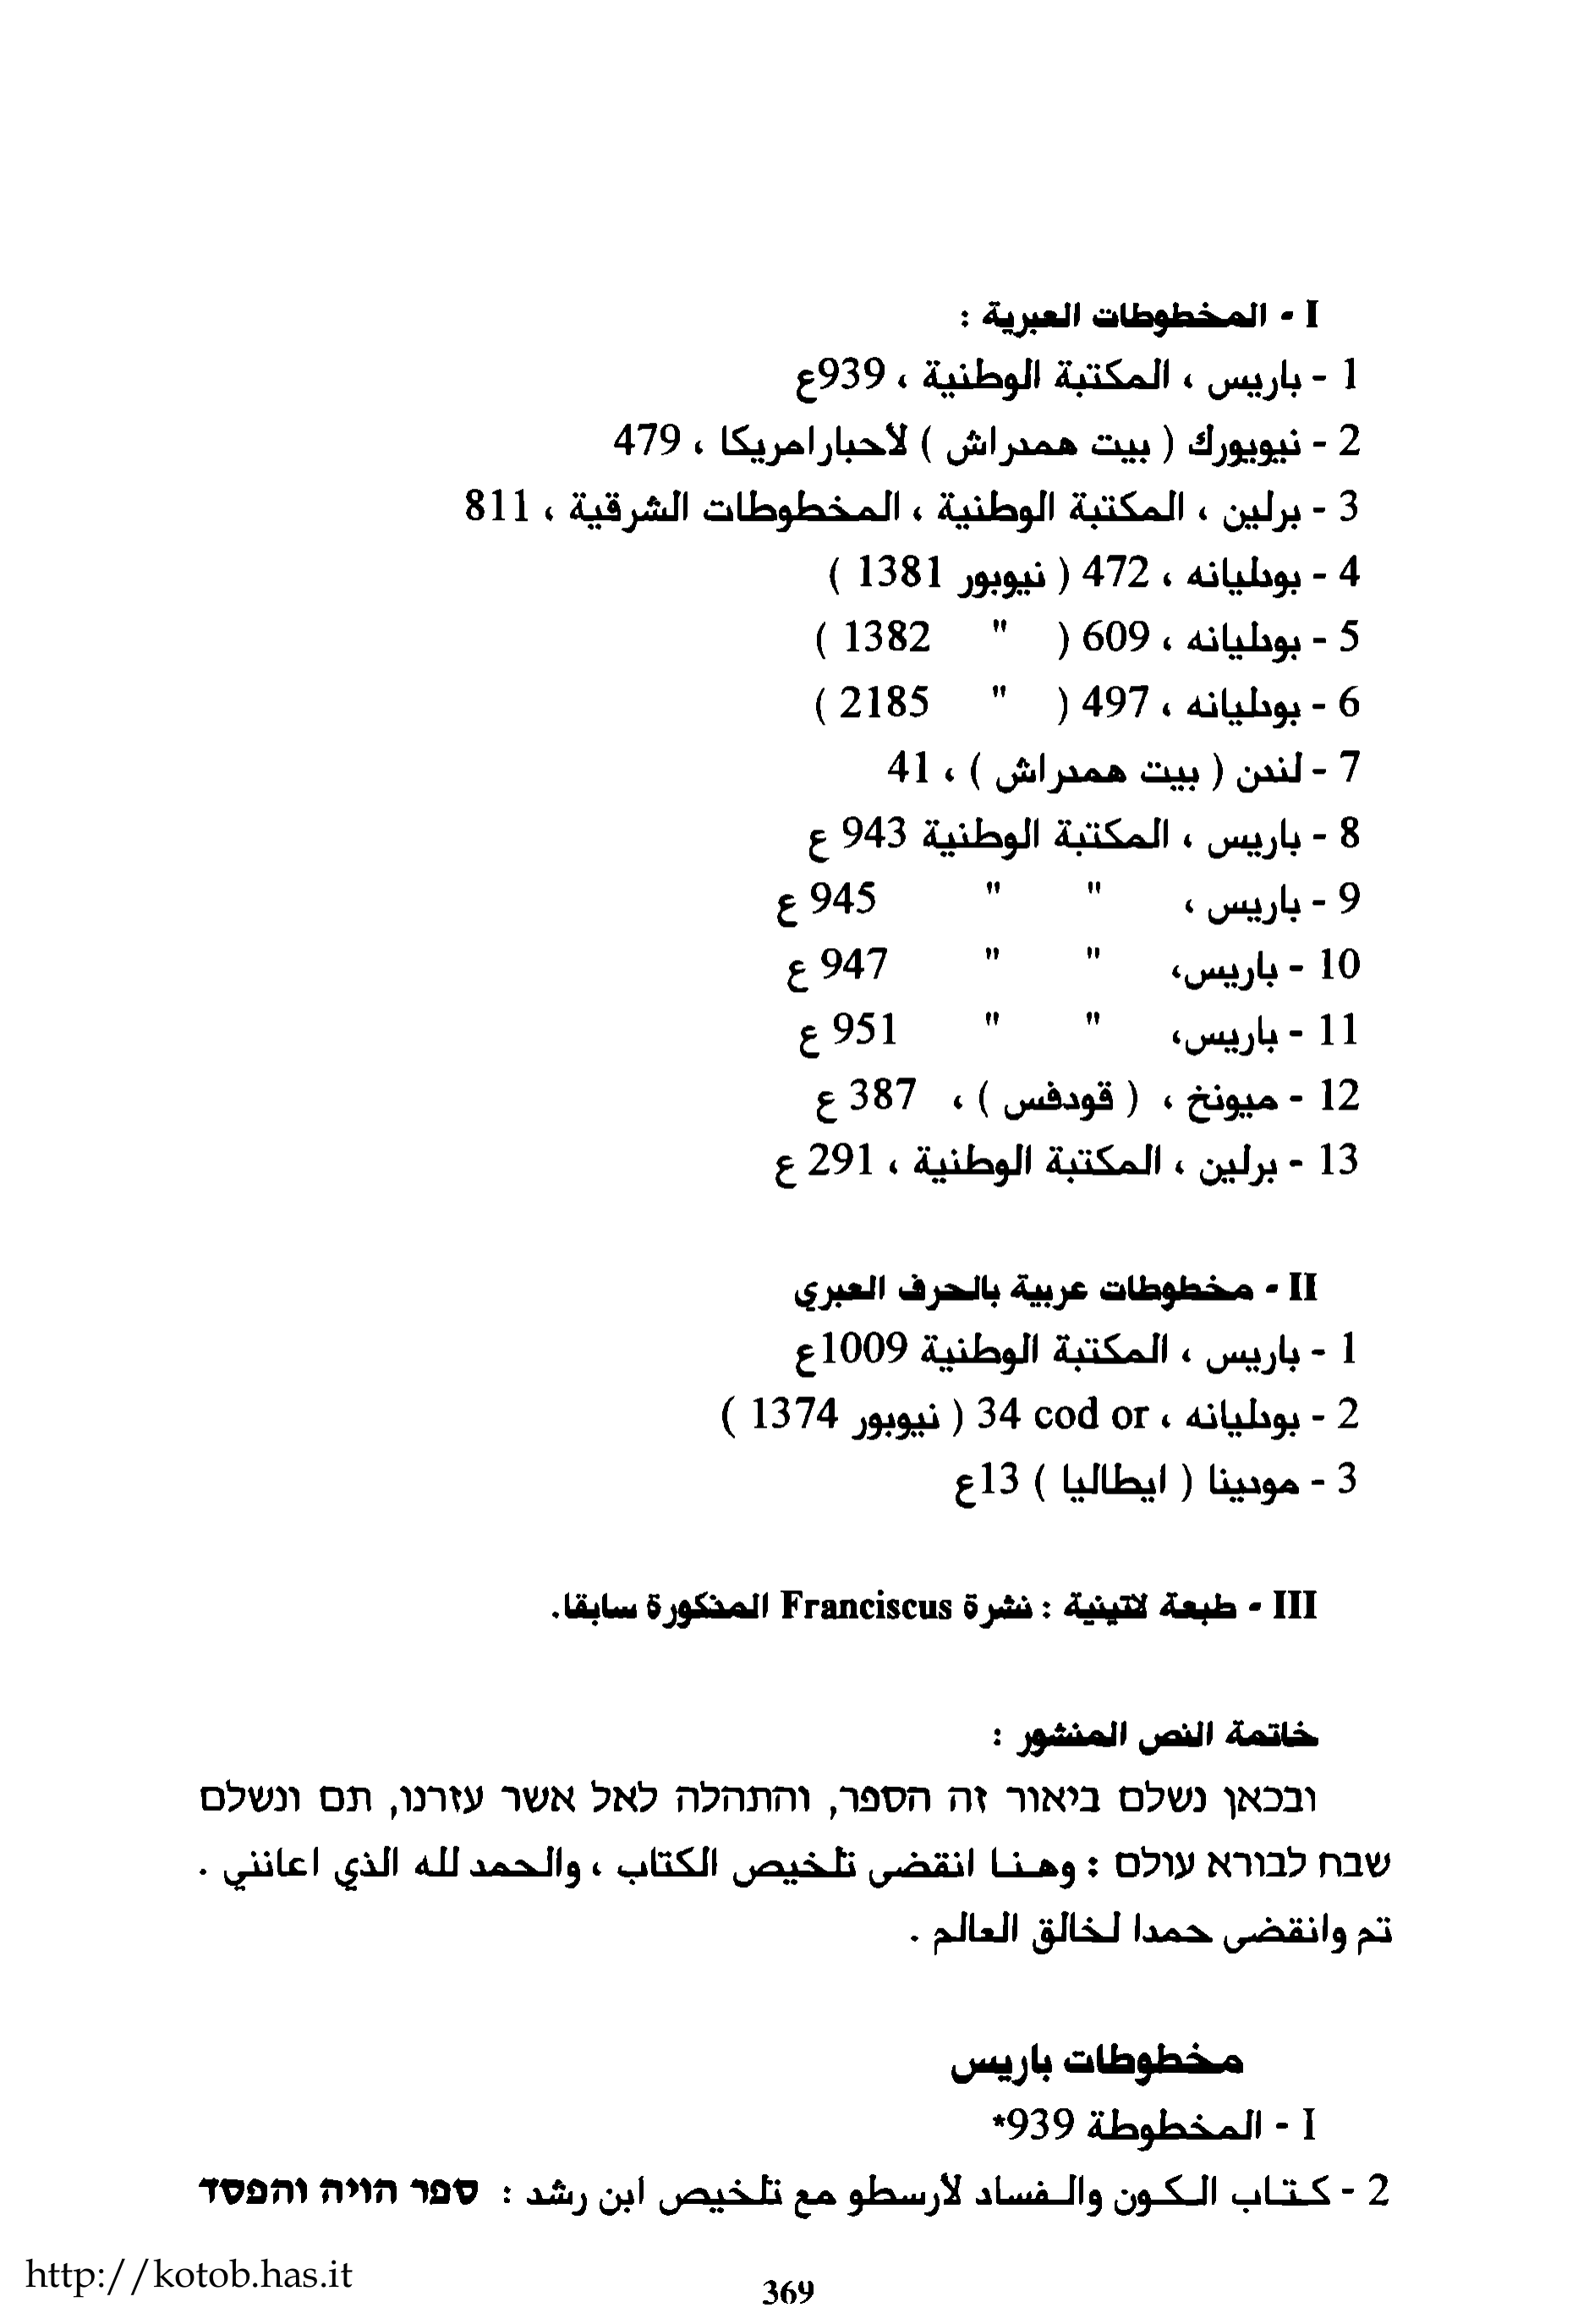 I - المخطوطات العبرية :
1 - باريس ، المكتبة الوطنية ، 939ع
2 - نيويورك ( بيت همدراش ) لأحبار امريكا ، 479
3 - برلين ، المكتبة الوطنية ، المخطوطات الشرقية ، 811
4 - بودليانه ، 472 ( نيوبور 1381 )
5 - بودليانه ، 609 ( " 1382 )
6 - بودليانه ، 497 ( " 2185 )
7 - لندن ( بيت همدراش ) ، 41
8 - باريس ، المكتبة الوطنية 943 ع
9 - باريس ، " " 945 ع
10 - باريس، " " 947 ع
11 - باريس، " " 951 ع
12 - ميونخ ، ( قودفس ) ، 387 ع
13 - برلين ، المكتبة الوطنية ، 291 ع
II - مخطوطات عربية بالحرف العبري
1 - باريس ، المكتبة الوطنية 1009ع
2 - بودليانه ، 34 cod or ( نيوبور 1374 )
3 - مودينا ( ايطاليا ) 13ع
III - طبعة لاتينية : نشرة Franciscus المذكورة سابقا.
خاتمة النص المنشور :
ובכאן נשלם ביאור זה הספר, והתהלה לאל אשר עזרנו, תם ונשלם
שבח לבורא עולם : وهنا انقضى تلخيص الكتاب ، والحمد لله الذي اعانني .
تم وانقضى حمدا لخالق العالم .
مخطوطات باريس
I - المخطوطة 939*
2 - كتاب الكون والفساد لأرسطو مع تلخيص ابن رشد : ספר הויה והפסד
http://kotob.has.it
369